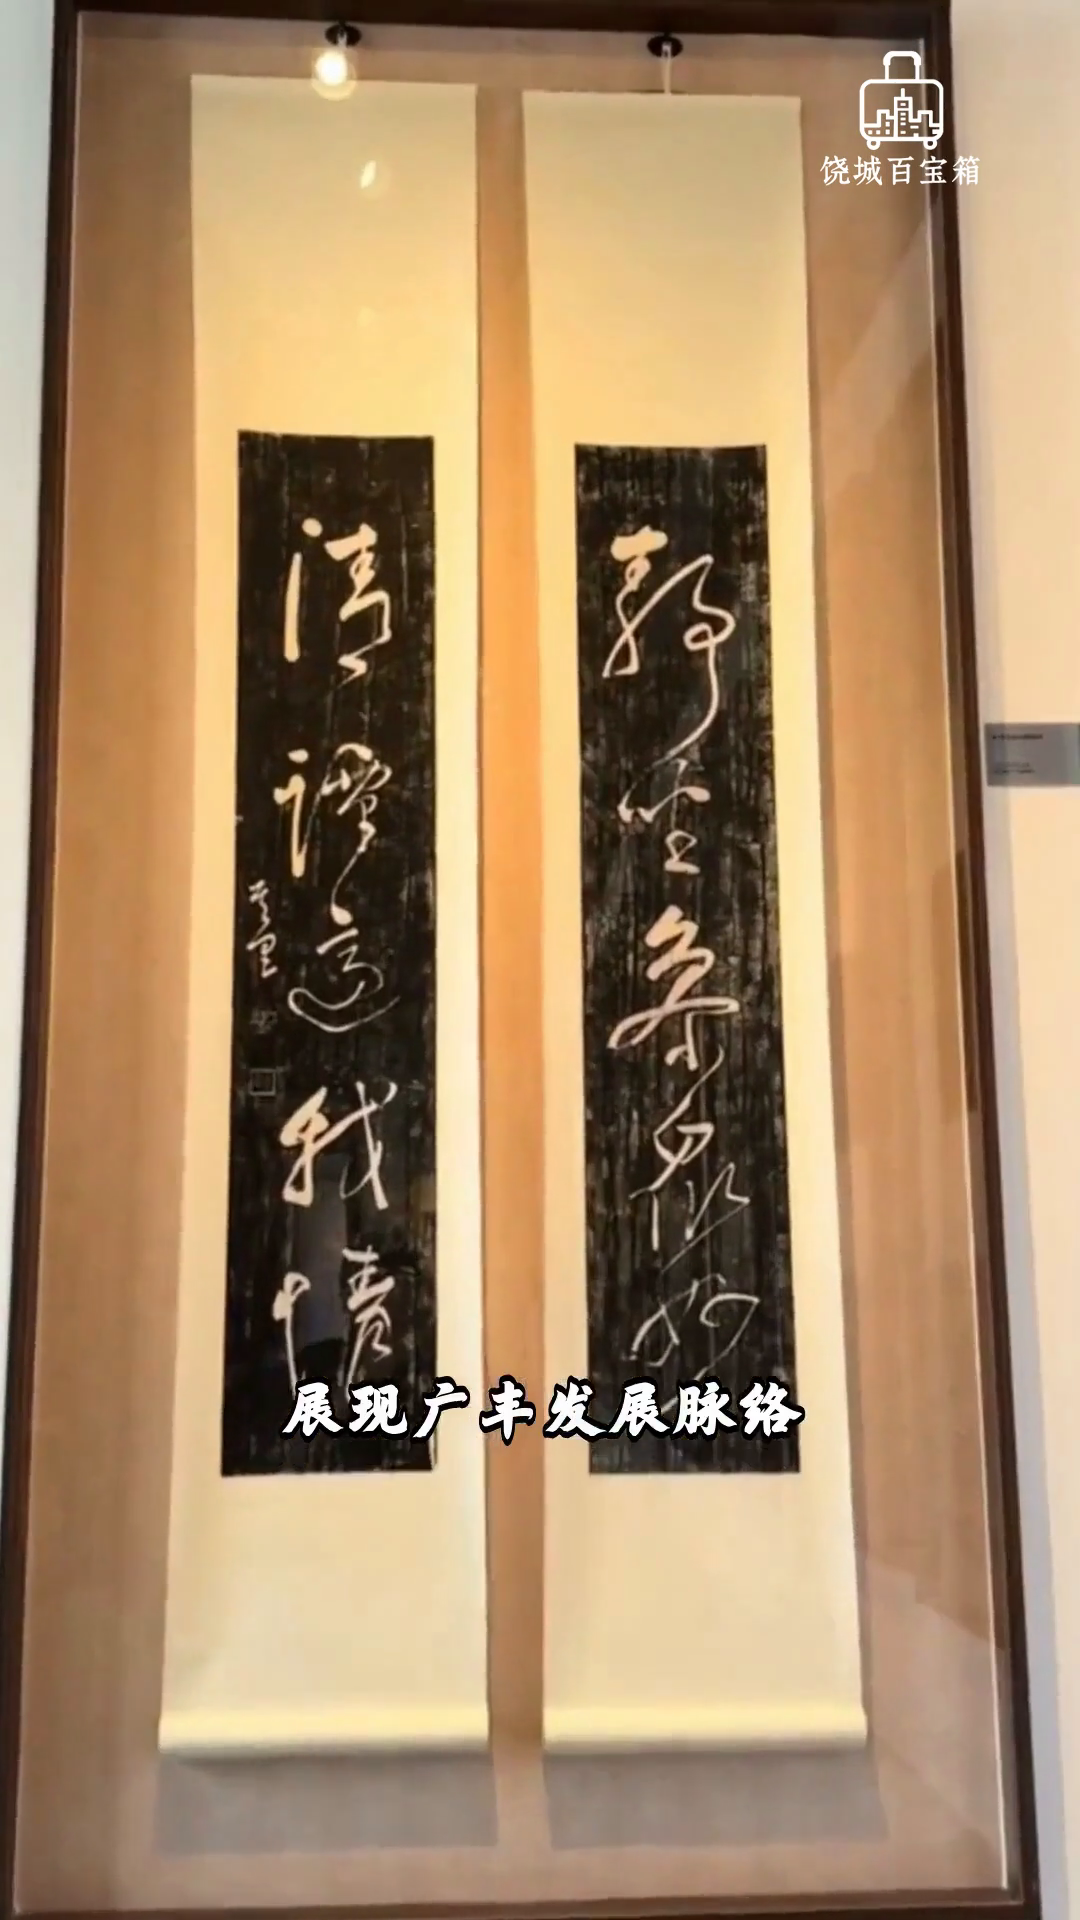 饶城百宝箱
静坐参众妙
清谭适我情
展现广丰发展脉络